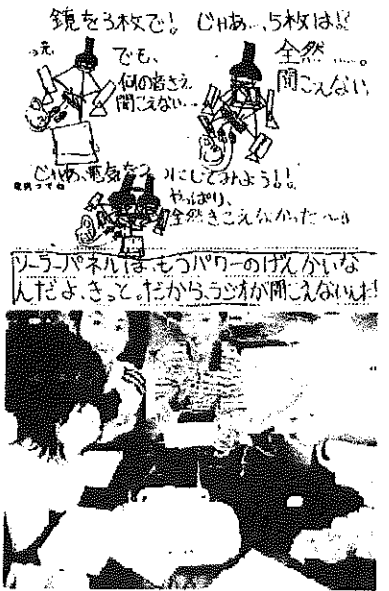 鏡を3枚で! じゃあ…、5枚は!!
でも、
何の音さえ
聞こえない…
全然……。
聞こえない
じゃあ、電気を2つにしてみよう!!
やっぱり、
全然きこえなかった〜
ソーラーパネルは、もうパワーのげんかいな
んだよ、きっと。だから、ラジオが聞こえないんだ!